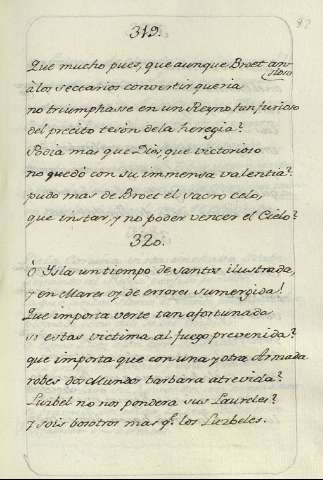 319.
Que mucho pues, que aunque Broet ansioso
à los sectarios convertir queria
no triumphasse en un Reyno tan furioso
del precito tesón de la heregia?
Podia mas que Dios, que victorioso
no quedò con su immensa valentia?
pudo mas de Broet el sacro celo,
que instar, y no poder vencer el Cielo?
320.
ò Isla un tiempo de Santos ilustrada,
y en Mares oy de errores sumergida!
Que importa verte tan afortunada,
si estas victima al fuego prevenida?
que importa que con una y otra Armada
robes dos Mundos barbara atrevida?
Luzbel no nos pondera sus Laureles?
y sois bosotros mas q.e los Luzbeles.